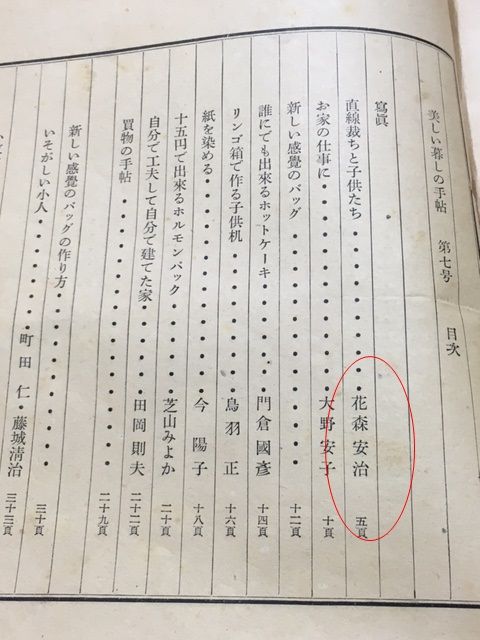 美しい暮しの手帖　第七号　目次
寫眞
直線裁ちと子供たち・・・・・・・・花森安治　五頁
お家の仕事に・・・・・・・・・・・大野安子　十頁
新しい感覺のバッグ・・・・・・・・・・・・十二頁
誰にでも出來るホットケーキ・・・・門倉國彥　十四頁
リンゴ箱で作る子供机・・・・・・・鳥羽　正　十六頁
紙を染める・・・・・・・・・・・・今　陽子　十八頁
十五円で出來るホルモンパック・・・芝山みよか　二十頁
自分で工夫して自分で建てた家・・・田岡則夫　二十二頁
買物の手帖・・・・・・・・・・・・・・・・二十九頁
新しい感覺のバッグの作り方・・・・・・・・三十頁
いそがしい小人・・・・・・・町田　仁・藤城清治　三十三頁